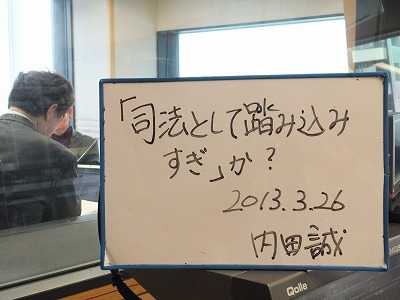 「司法として踏み込み
すぎ」か?
2013.3.26
内田誠
Qolle